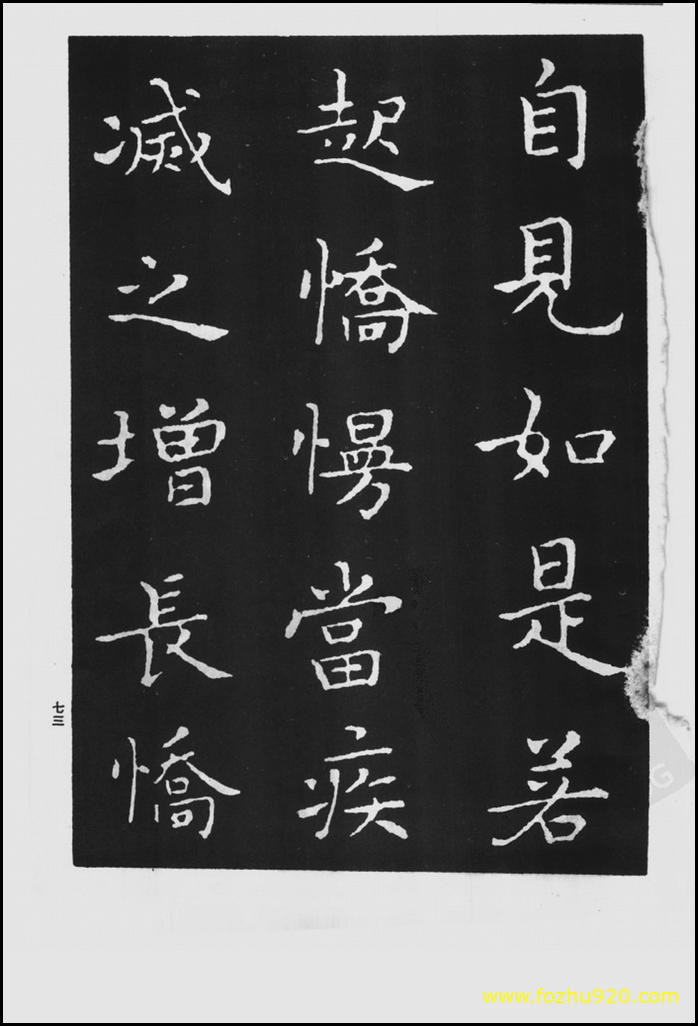 自見如是若
起憍慢當疾
滅之增長憍
七三
www.fozhu920.com